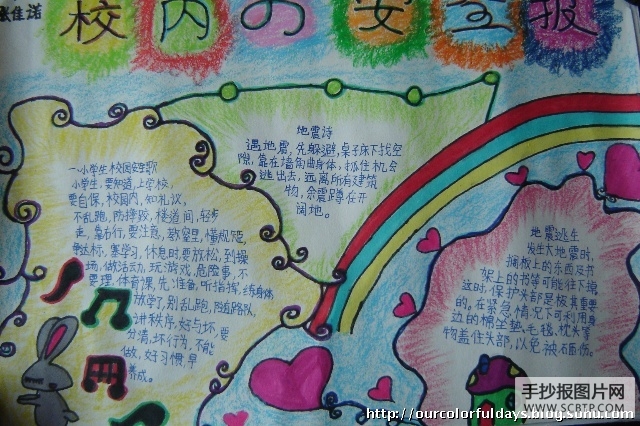 张佳诺
校内の安全报
一小学生校园安全歌
小学生,要知道,上学校,
要自保,校园内,知礼议,
不乱跑,防摔跤,楼道间,轻步
走,靠右行,要注意,教室里,懂规范,
要达标,塞学习,休息时,要放松,到操
场,做活动,玩游戏,危险事,不
要理,体育课,先准备,听指挥,练身体
放学了,别乱跑,随路队,
讲秩序,好与坏,要
分清,坏行为,不能
做,好习惯,早
养成。
地震诗
遇地震,先躲避,桌子床下找空
隙,靠在墙角曲身体,抓住机会
逃出去,远离所有建筑
物,余震蹲在开
阔地。
地震逃生
发生大地震时,
搁板上的东西及书
架上的书等可能往下塌
这时,保护头部是极其重要
的。在紧急情况下可利用身
边的棉坐垫、毛毯、枕头等
物盖住头部,以免被砸伤。
手抄报图片网
WWW.SCBTP.COM
http://ourcolorfuldays.blog.sohu.com